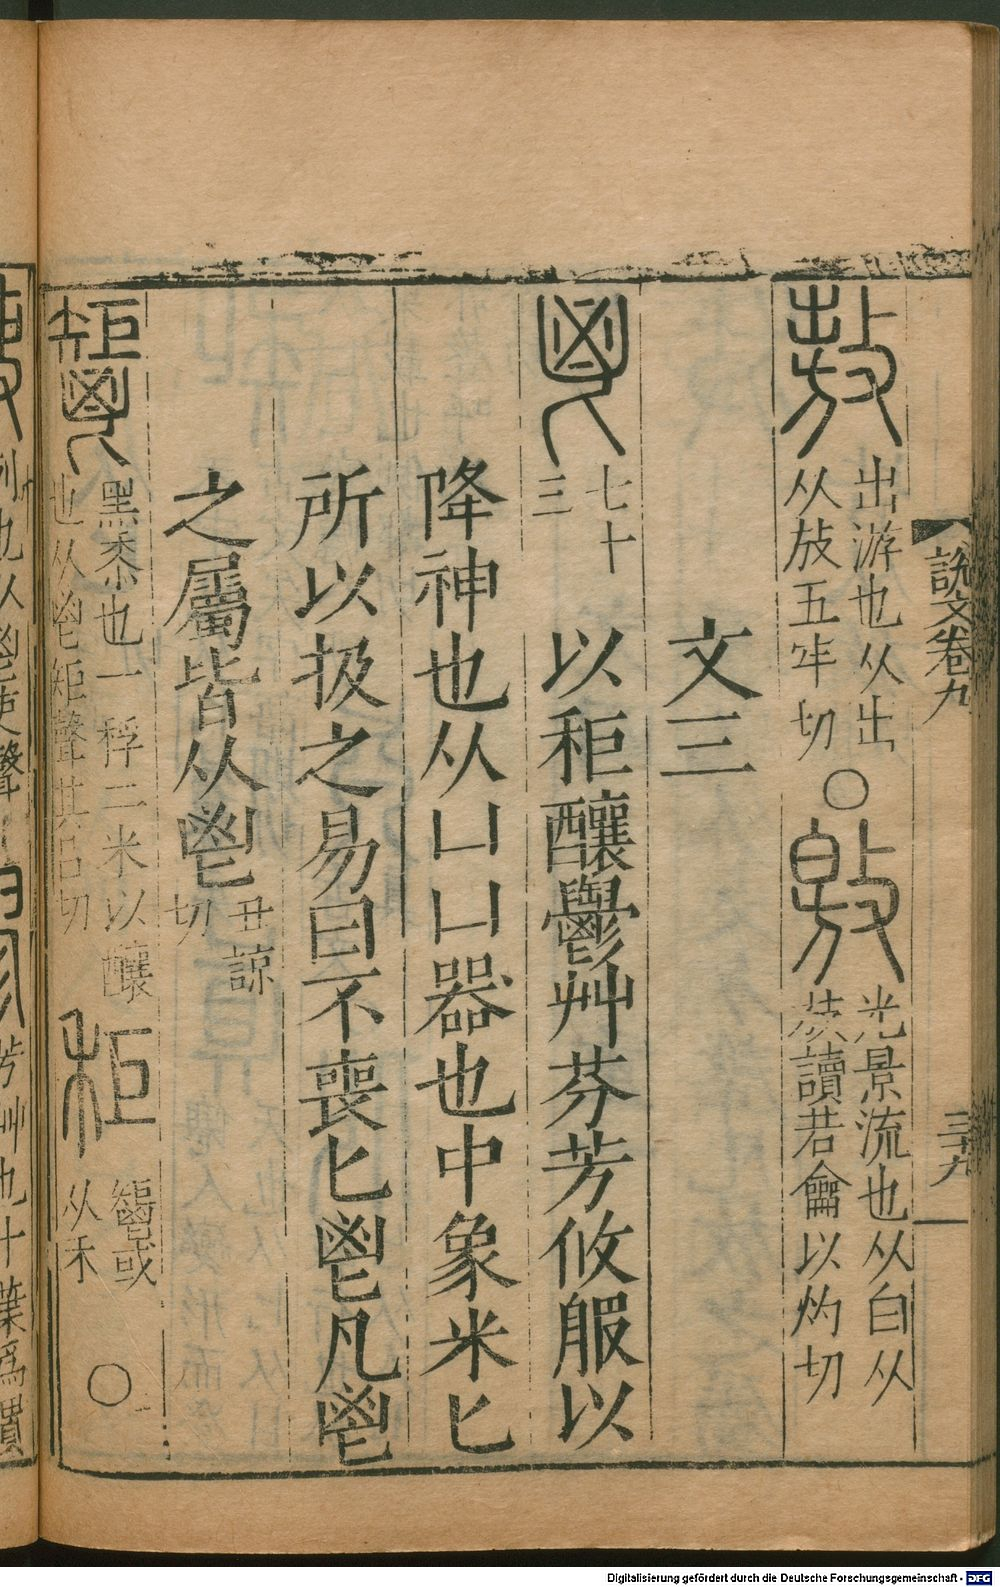 說文卷九
三十九
敖
出游也从出
从放五牢切
○
敫
光景流也从白从
放讀若龠以灼切
文三
鬯
七十
三
以秬釀鬱艸芬芳攸服以
降神也从凵凵器也中象米匕
所以扱之易曰不喪匕鬯凡鬯
之屬皆从鬯
丑諒
切
𩰤
黑黍也一稃二米以釀
也从鬯矩聲其呂切
秬
𩰤或
从禾
○
列也从鬯吏聲
芳艸也十葉爲貫
Digitalisierung gefördert durch die Deutsche Forschungsgemeinschaft - DFG